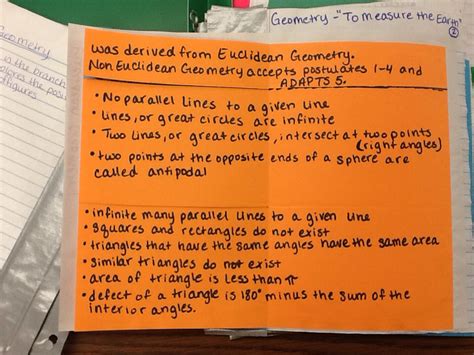 Geometry - "To measure the Earth"
②
eometry
is the branch
was derived from Euclidean Geometry.
Non Euclidean Geometry accepts postulates 1-4 and
ADAPTS 5.
• No parallel lines to a given line
• Lines, or great circles are infinite
• Two lines, or great circles, intersect at two points
(right angles)
• two points at the opposite ends of a sphere are
called antipodal
• infinite many parallel lines to a given line
• Squares and rectangles do not exist
• triangles that have the same angles have the same area
• similar triangles do not exist
• area of triangle is less than π
• defect of a triangle is 180° minus the sum of the
interior angles.